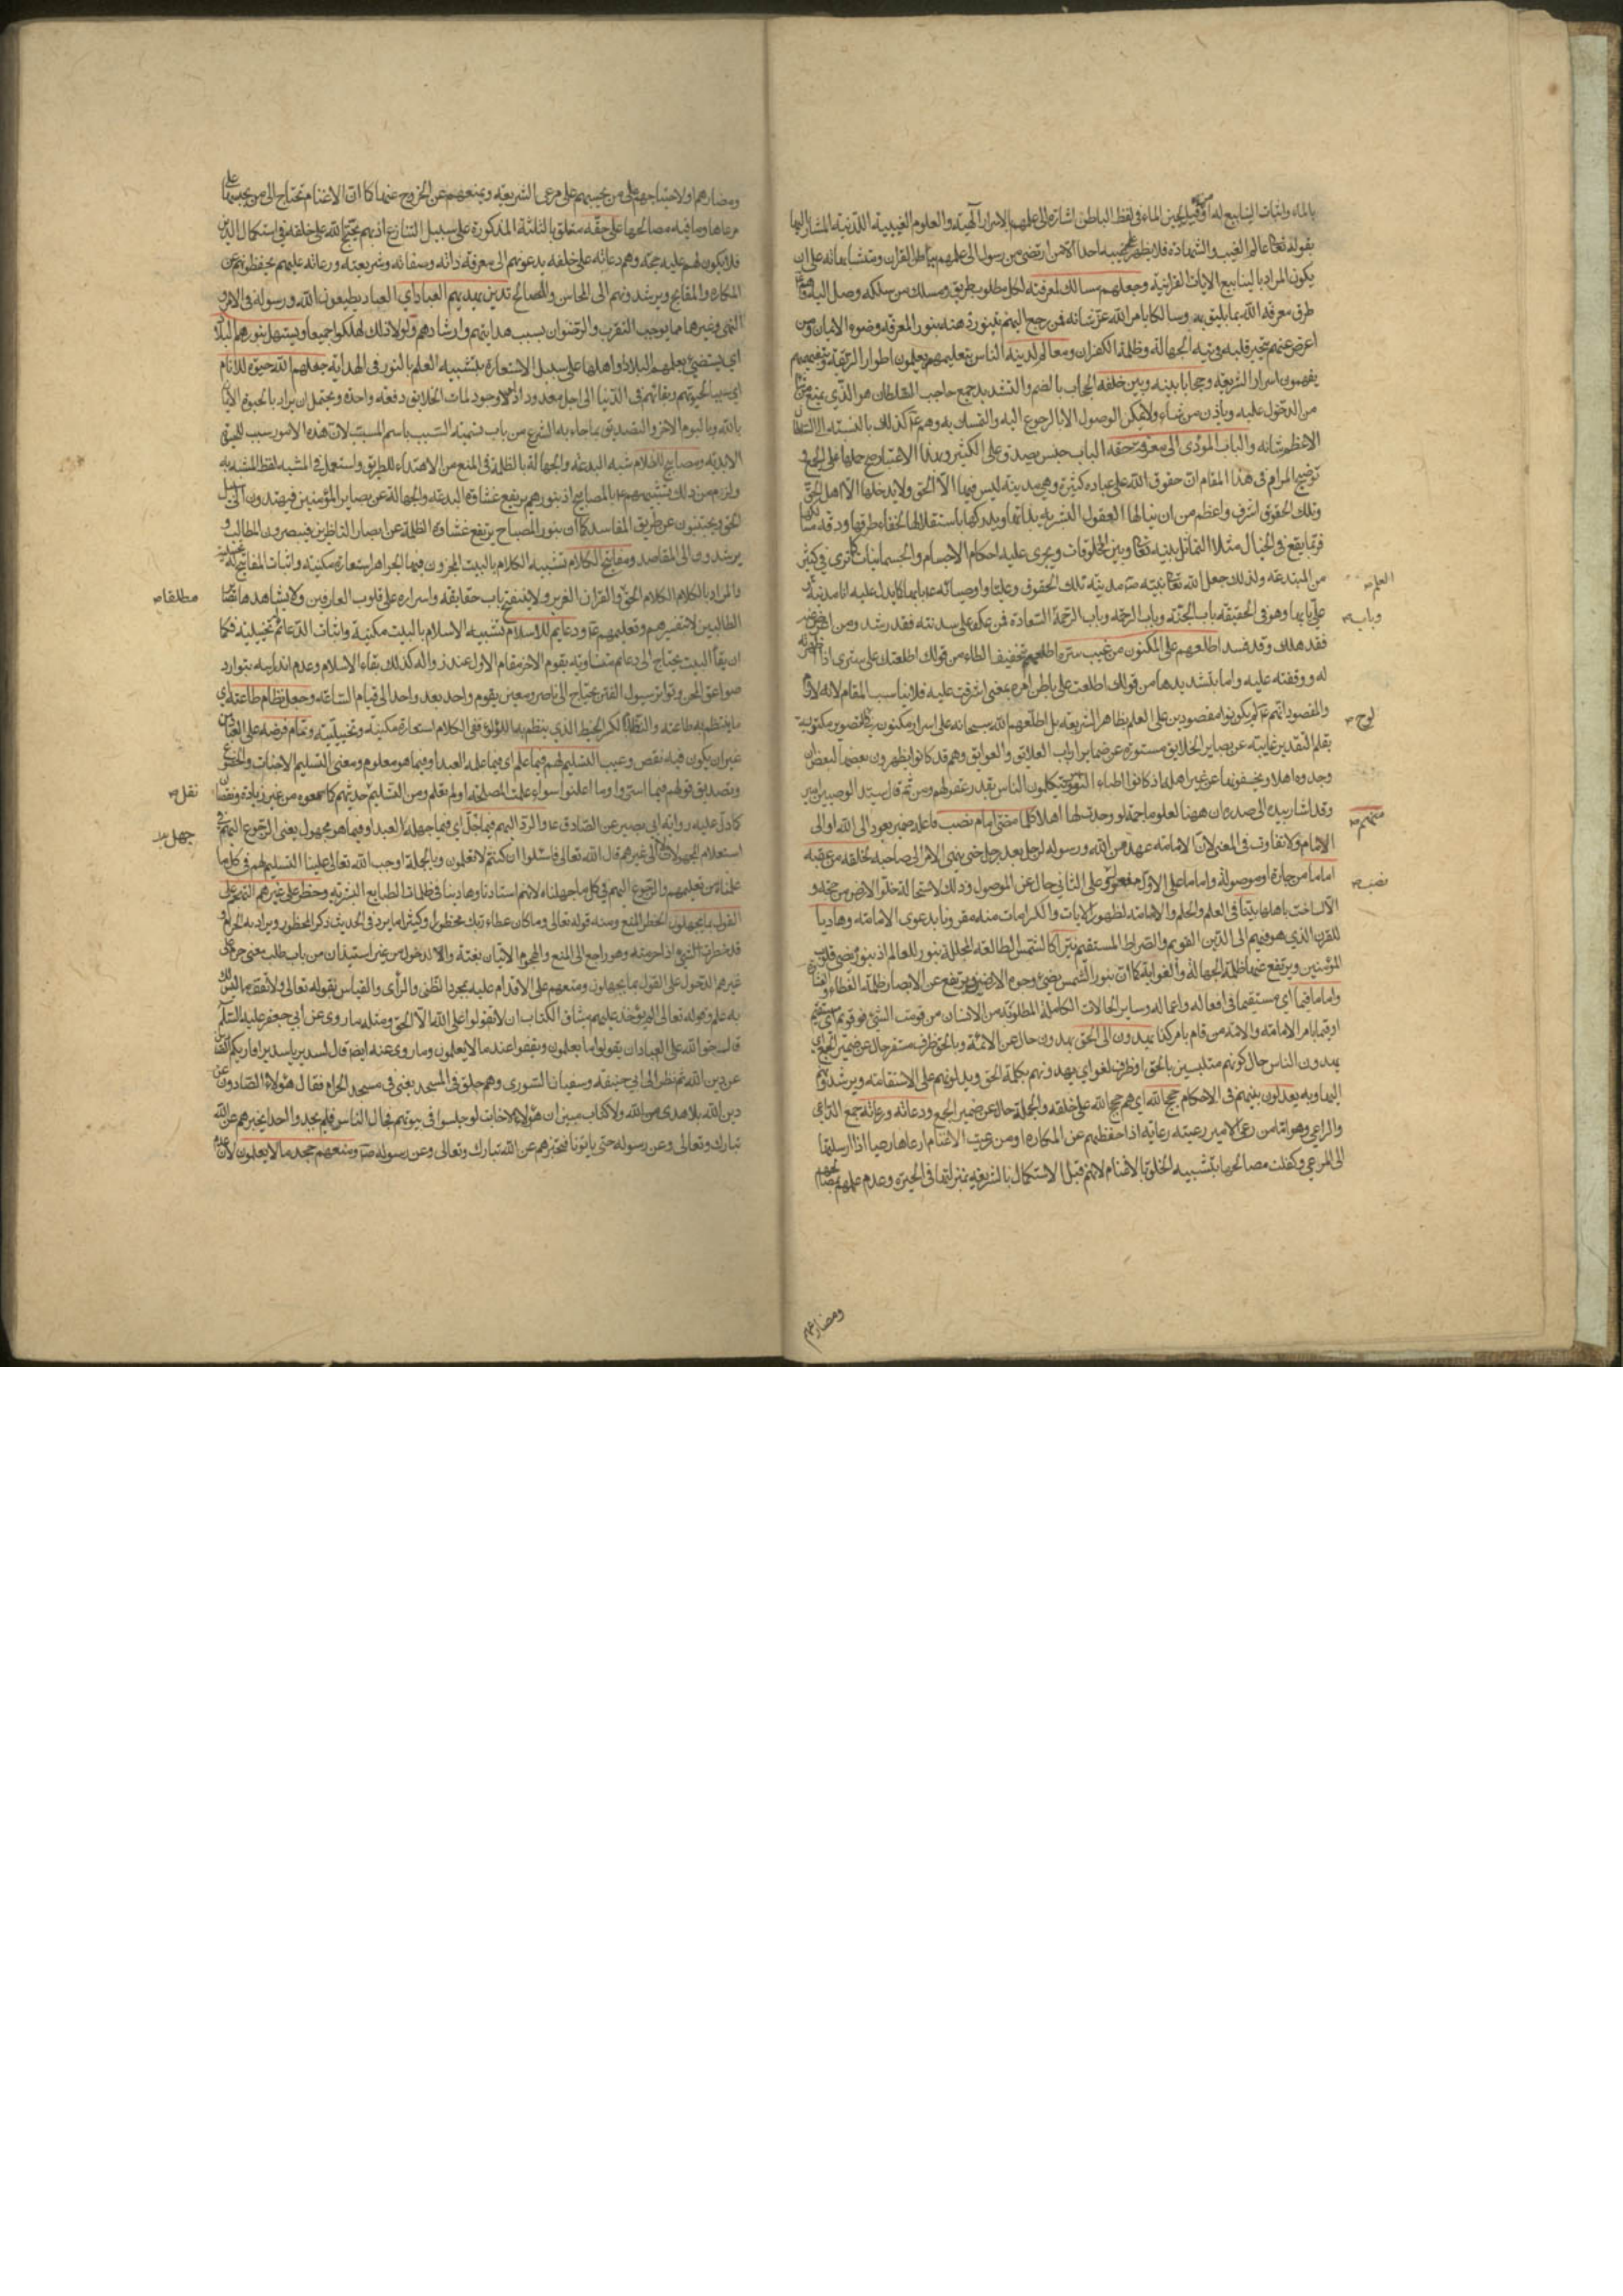 بالماء واثبات الينابيع له او من قبيل لجين الماء وفى لفظ الباطن اشارة الى علمهم بالاسرار الالهية والعلوم الغيبية اللدنية المشار اليها
بقوله تعالى عالم الغيب والشهادة فلا يظهر على غيبه احدا الا من ارتضى من رسول الى علمهم بباطن القران ومتشابهاته على ان
يكون المراد بالينابيع الايات القرانية وجعلهم مسالك لمعرفته لكل مطلوب طريق ومسلك من سلكه وصل اليه وهم
طرق معرفة الله بما يليق به وسالكا بامر الله عز شانه فمن رجع اليهم تنور ذهنه بنور المعرفة وضوء الايمان ومن
اعرض عنهم تحير قلبه فى تيه الجهالة وظلمة الكفران ومعالم لدينه الناس بتعليمهم يعلمون اطوار الطريقة وبتفهيمهم
يفهمون اسرار الشريعة وحجابا بينه وبين خلقه الحجاب بالضم والتشديد جمع حاجب السلطان هو الذى يمنع من شاء
من الدخول عليه وياذن من شاء ولا يمكن الوصول الا بالرجوع اليه والتمسك به وهم ع كذلك بالنسبة الى السلطان
الاعظم شانه والباب المؤدى الى معرفة حقه الباب جنس يصدق على الكثير وبهذا الاعتبار صح حملها على الجمع و
توضيح المرام فى هذا المقام ان حقوق الله على عباده كثيرة وهى مدينة ليس فيها الا الحق ولا يدخلها الا اهل الحق
وتلك الحقوق اشرف واعظم من ان ينالها العقول البشرية بذاتها ويدركها باستقلالها لخفاء طرقها ودقة مسالكها
فربما يقع فى الخيال مثلا التماثل بينه تعالى وبين المخلوقات ويجرى عليه احكام الاجسام والجسمانيات كما ترى فى كثير
من المبتدعة ولذلك جعل الله تعالى نبيه ص مدينة تلك الحقوق وعليا واوصيائه ع بابها كما يدل عليه انا مدينة العلم
على بابها وهو فى الحقيقة باب الجنة وباب الرحمة وباب السعادة فمن عكف على سدنته فقد رشد ومن اعرض عنهم
فقد هلك وقد فسد اطلعهم على المكنون من غيب سره اطلعهم بتخفيف الطاء من قولك اطلعتك على سرى اذا اظهرته
له ووقفته عليه واما بتشديدها من قولك اطلعت على باطن امره بمعنى اشرفت عليه فلا يناسب المقام لانه لازم
والمقصود انهم ع لم يكونوا مقصودين على العلم بظاهر الشريعة بل اطلعهم الله سبحانه على اسرار مكنونة
بقلم التقدير غايبة عن بصاير الخلايق مستورة عن ضماير ارباب العلايق والعوايق وهم قد كانوا يظهرون بعضها لبعض ان
وجدوه اهلا ويخفونها عن غير اهلها اذ كانوا اطباء النفوس يتكلمون الناس بقدر عقولهم ومن ثم قال سيد الوصيين
وقد اشار بيده الى صدره ان ههنا لعلوما جمة لو وجدت لها اهلا كلما مضى امام نصب فاعله ضمير يعود الى الله او الى
الامام ولا تفاوت فى المعنى لان الامامة عهد من الله ورسوله لرجل بعد رجل حتى ينتهى الامر الى صاحبه لخلقه من عقبه
اماما من جارة او موصولة واماما على الاول مفعول وعلى الثانى حال عن الموصول وذلك لاستحالة خلو الارض من حجة و
الا لساخت باهلها بينا فى العلم والحلم والامامة لظهور الايات والكرامات منه مقرونا بدعوى الامامة وهاديا
للقرن الذى هو فيهم الى الدين القويم والصراط المستقيم نيرا كالشمس الطالعة المجللة بنورها للعالم اذ بنوره يضىء قلوب
المؤمنين ويرتفع عنها ظلمة الجهالة والغواية كما ان بنور الشمس يضىء وجوه الارضين ويرتفع عن الابصار ظلمة الغطاء
واماما قيما اى مستقيما فى افعاله واعماله وساير الحالات الكاملة المطلوبة من الانسان من قومت الشىء فهو قويم اى مستقيم
او قيما بامر الامامة والامة من قام بامر كذا يهدون الى الحق يهدون حال عن الائمة وبالحق ظرف مستقر حال عن ضمير الجمع اى
يهدون الناس حال كونهم متلبسين بالحق او ظرف لغو اى يهدونهم بكلمة الحق ويدلونهم على الاستقامة ويرشدونهم
اليها وبه يعدلون بينهم فى الاحكام حجج الله اى هم حجج الله على خلقه والجملة حال عن ضمير الجمع ودعاته ورعاته جمع الداعى
والراعى وهو اما من رعى الامير رعيته رعاية اذا حفظهم عن المكاره او من رعيت الاغنام ارعاها رعيا اذا ارسلتها
الى المرعى وكفلت مصالحها بتشبيه الخلق بالاغنام لانهم قبل الاستكمال بالشريعة بمنزلتها فى الحيرة وعدم علمهم بمصالحهم
ومضارهم
العلم
وباب
لوح
نصب
ومضارهم ولاحتياجهم الى من يحبسهم على مرعى الشريعة ويمنعهم عن الخروج عنها كما ان الاغنام تحتاج الى من يحبسها على
مرعاها وما فيه مصالحها على حقه متعلق بالثلثة المذكورة على سبيل التنازع اذ بهم يحتج الله على خلقه فى استكمال الدين
فلا يكون لهم عليه حجة وهم دعاته على خلقه يدعونهم الى معرفة ذاته وصفاته وشريعته ورعاته عليهم يحفظونهم عن
المكاره والمقابح ويرشدونهم الى المحاسن والمصالح تدين بهديهم العباد اى العباد يطيعون الله ورسوله فى الامر و
النهى وغيرها مما يوجب التقرب والرضوان بسبب هدايتهم وارشادهم ولولا ذلك لهلكوا جميعا ويستهل بنورهم البلاد
اى يستضىء بعلمهم البلاد واهلها على سبيل الاستعارة بتشبيه العلم بالنور فى الهداية جعلهم الله حيوة للانام
اى سببا لحيوتهم وبقائهم فى الدنيا الى اجل معدود اذ لولا وجودهم لمات الخلايق دفعة واحدة ويحتمل ان يراد بالحيوة الايمان
بالله وباليوم الاخر والتصديق بما جاء به الشرع من باب تسمية السبب باسم المسبب لان هذه الامور سبب للحيوة
الابدية ومصابيح للظلام شبه البدعة والجهالة بالظلمة فى المنع من الاهتداء للطريق واستعمل فى المشبه لفظ المشبه به
ولزم من ذلك تشبيههم ع بالمصابيح اذ بنورهم يرتفع غشاوة البدعة والجهالة عن بصاير المؤمنين فيهتدون الى سبيل
الحق ويجتنبون عن طريق المفاسد كما ان بنور المصباح يرتفع غشاوة الظلمة عن ابصار الناظرين فيبصرون المطالب و
يرشدون الى المقاصد ومفاتيح للكلام تشبيه الكلام بالبيت المخزون فيها الجواهر استعارة مكنية واثبات المفاتيح له تخييلية
والمراد بالكلام الكلام الحق والقران العزيز ولا ينفتح باب حقايقه واسراره على قلوب العارفين ولا يشاهدها بصاير
الطالبين الا بتفسيرهم وتعليمهم ع ودعايم للاسلام تشبيه الاسلام بالبيت مكنية واثبات الدعائم تخييلية فكما
ان بقاء البيت يحتاج الى دعايم متساوية يقوم الاخر مقام الاول عند زواله كذلك بقاء الاسلام وعدم اندراسه بتوارد
صواعق المحن وتواتر سيول الفتن يحتاج الى ناصر ومعين يقوم واحد بعد واحد الى قيام الساعة وجعل نظام طاعته اى
ما ينتظم به طاعته والنظام بالكسر الخيط الذى ينظم به اللؤلؤ ففى الكلام استعارة مكنية وتخييلية وتمام فرضه على العباد من
غير ان يكون فيه نقص وعيب التسليم لهم فيما علم اى فيما علمه العبد او فيما هو معلوم ومعنى التسليم الاخبات والخضوع
وتصديق قولهم فيما اسروا وما اعلنوا سواء علمت المصلحة او لم تعلم ومن التسليم حديثهم كما سمعوه من غير زيادة ونقصان
كما دل عليه رواية ابى بصير عن الصادق ع والرد اليهم فيما جهل اى فيما جهله العبد او فيما هو مجهول يعنى الرجوع اليهم فى
استعلام المجهولات لا الى غيرهم قال الله تعالى فاسئلوا ان كنتم لا تعلمون وبالجملة اوجب الله تعالى علينا التسليم لهم فى كل ما
علمناه من تعليمهم والرجوع اليهم فى كل ما جهلناه لانهم استادنا وهادينا فى ظلمات الطبايع البشرية وحظر على غيرهم التهجم على
القول بما يجهلون الحظر المنع ومنه قوله تعالى وما كان عطاء ربك محظورا وكثيرا ما يرد فى الحديث ذكر المحظور ويراد به الحرام و
قد حظرت الشىء اذا حرمته وهو راجع الى المنع والهجوم الاتيان بغتة والدخول من غير استيذان من باب طلب يعنى حرم على
غيرهم الدخول على القول بما يجهلون ومنعهم على الاقدام عليه بمجرد الظن والراى والقياس بقوله تعالى ولا تقف ما ليس لك
به علم وقوله تعالى الم يؤخذ عليهم ميثاق الكتاب ان لا تقولوا على الله الا الحق ومثله ما روى عن ابى جعفر عليه السلام
قال حق الله على العباد ان يقولوا ما يعلمون ويقفوا عند ما لا يعلمون وما روى عنه ايضا قال لسدير يا سدير افاريكم الصادين
عن دين الله ثم نظر الى ابى حنيفة وسفيان الثورى وهم حلق فى المسجد يعنى فى مسجد الحرام فقال هؤلاء الصادون عن
دين الله بلا هدى من الله ولا كتاب مبين ان هؤلاء الاخابث لو جلسوا فى بيوتهم فجال الناس فلم يجدوا احدا يخبرهم عن الله
تبارك وتعالى وعن رسوله حتى ياتونا فنخبرهم عن الله تبارك وتعالى وعن رسوله ص ومنعهم جحد ما لا يعلمون لان
مطلقا
نقل
جهل